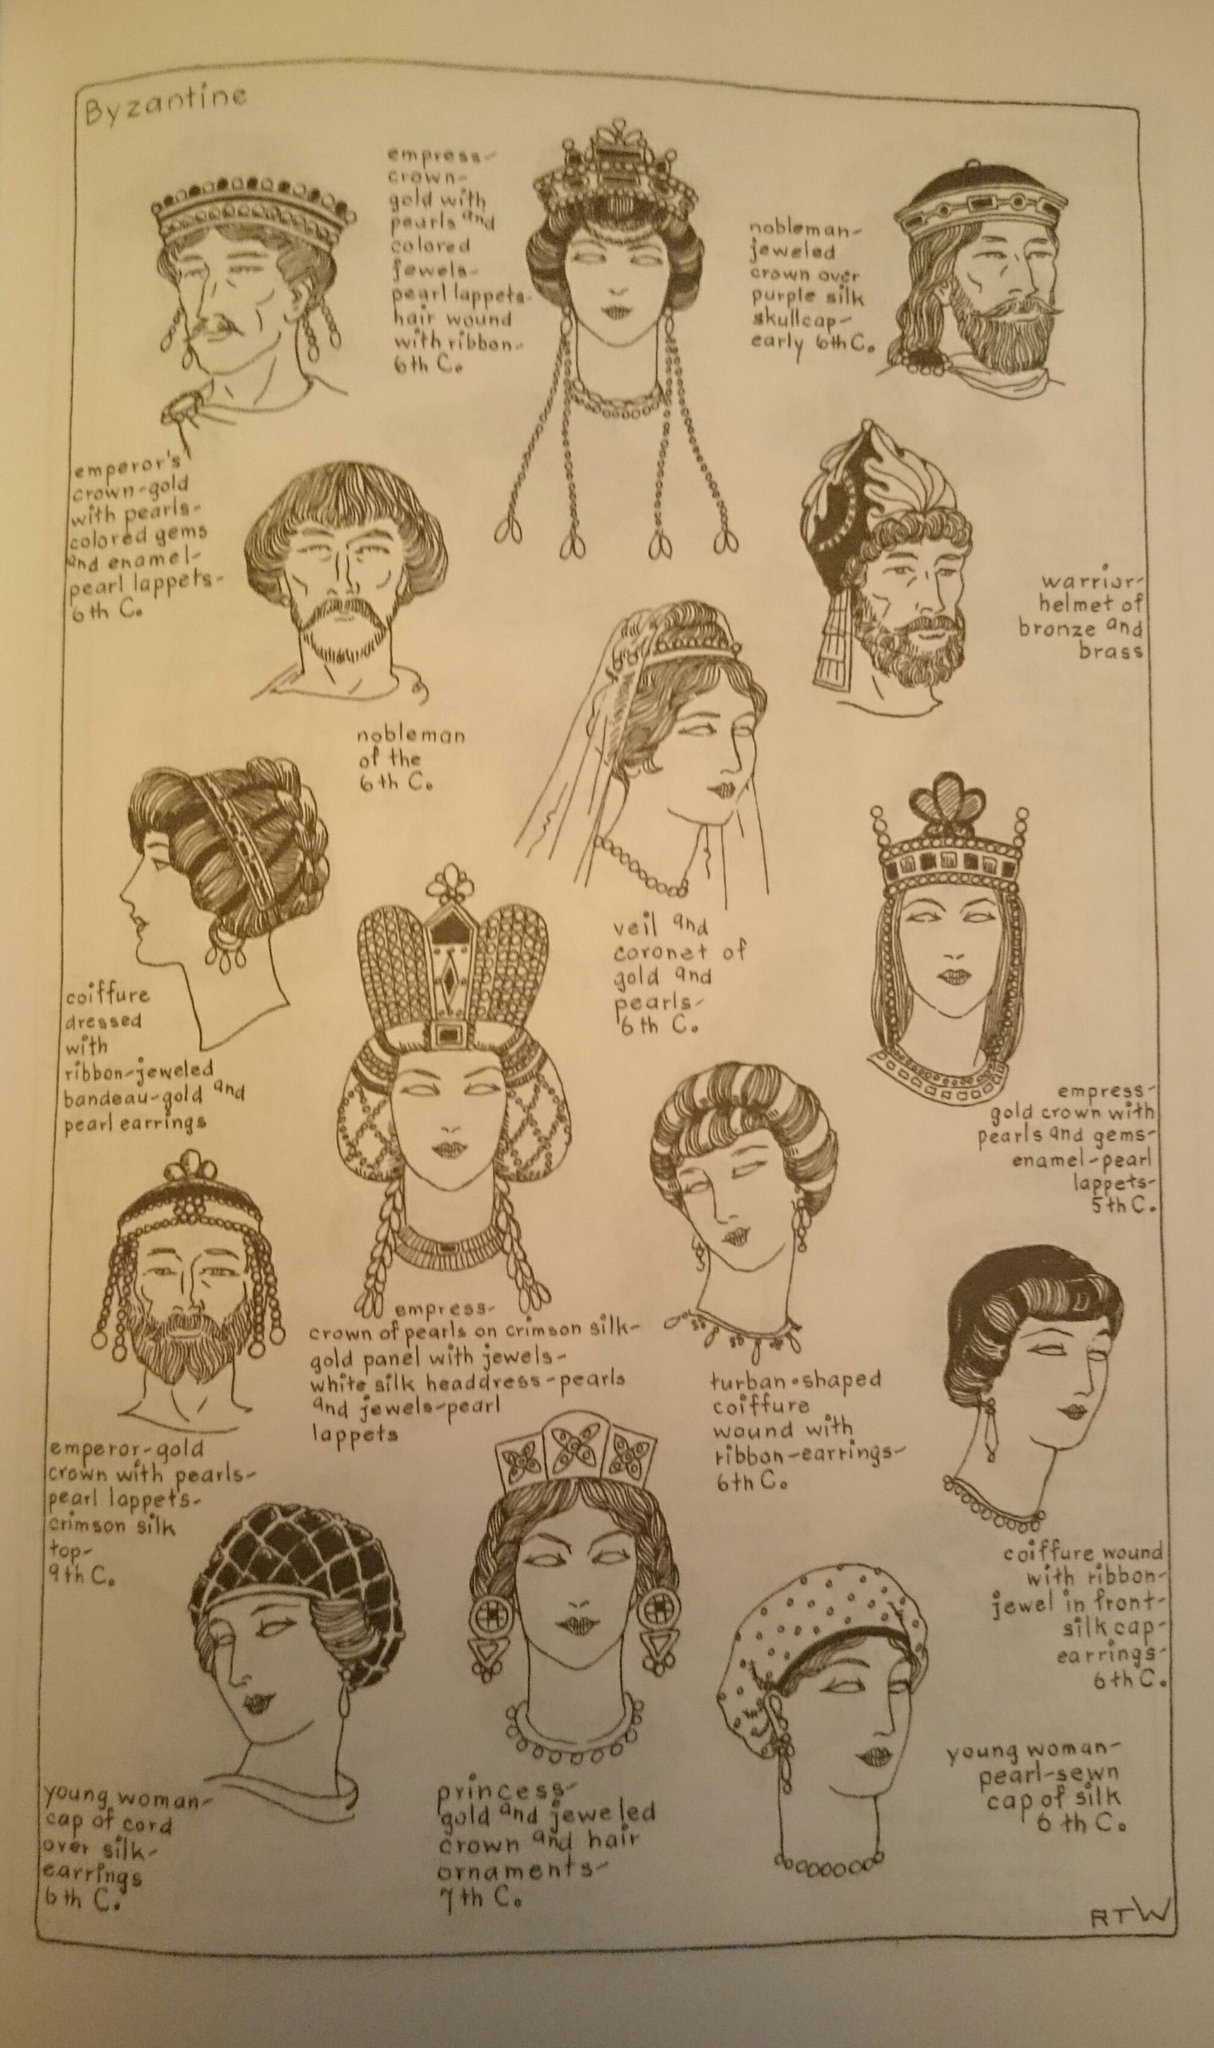 Byzantine
empress-
crown-
gold with
pearls and
colored
jewels-
pearl lappets-
hair wound
with ribbon-
6th C.
nobleman-
jeweled
crown over
purple silk
skullcap-
early 6th C.
emperor's
crown-gold
with pearls-
colored gems
and enamel-
pearl lappets-
6th C.
warrior-
helmet of
bronze and
brass
nobleman
of the
6th C.
veil and
coronet of
gold and
pearls-
6th C.
coiffure
dressed
with
ribbon-jeweled
bandeau-gold and
pearl earrings
empress-
gold crown with
pearls and gems-
enamel-pearl
lappets-
5th C.
empress-
crown of pearls on crimson silk-
gold panel with jewels-
white silk headdress-pearls
and jewels-pearl
lappets
turban-shaped
coiffure
wound with
ribbon-earrings-
6th C.
emperor-gold
crown with pearls-
pearl lappets-
crimson silk
top-
9th C.
coiffure wound
with ribbon-
jewel in front-
silk cap-
earrings-
6th C.
young woman-
cap of cord
over silk-
earrings
6th C.
princess-
gold and jeweled
crown and hair
ornaments-
7th C.
young woman-
pearl-sewn
cap of silk
6th C.
RTW